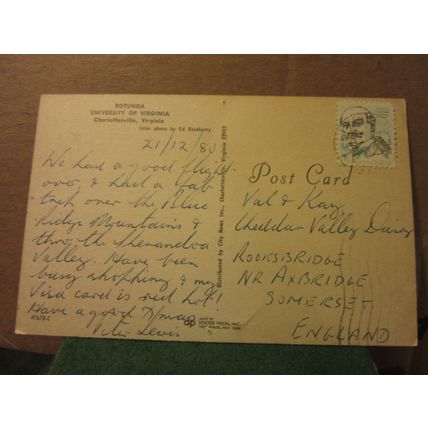 ROTUNDA
UNIVERSITY OF VIRGINIA
Charlottesville, Virginia
Color photo by Ed Roseberry
21/12/80
We had a good flight
over, & had a fab
trip over the Blue
Ridge Mountains &
thro' the Shenandoa
Valley. Have been
busy shopping & my
Visa card is red hot!
Have a good Xmas
Peter Lewis
47672-C
Distributed by City News Inc., Charlottesville, Virginia 22902
MADE BY
DEXTER PRESS, INC.
WEST NYACK, NEW YORK
Post Card
Val & Kay
Cheddar Valley Dairy
ROOKSBRIDGE
NR AXBRIDGE
SOMERSET
ENGLAND